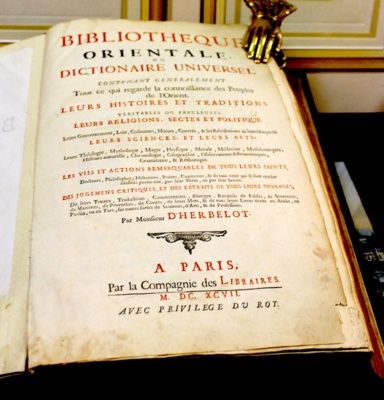 BIBLIOTHEQUE
ORIENTALE,
OU
DICTIONAIRE UNIVERSEL
CONTENANT GENERALEMENT
Tout ce qui regarde la connoissance des Peuples
de l'Orient.
LEURS HISTOIRES ET TRADITIONS
VERITABLES OU FABULEUSES.
LEURS RELIGIONS, SECTES ET POLITIQUE.
Leurs Gouvernement, Loix, Coûtumes, Mœurs, Guerres, & les Révolutions de leurs Empires
LEURS SCIENCES, ET LEURS ARTS,
Leurs Théologie, Mythologie, Magie, Physique, Morale, Médecine, Mathématiques,
Histoire naturelle, Chronologie, Géographie, Observations Astronomiques,
Grammaire, & Réthorique.
LES VIES ET ACTIONS REMARQUABLES DE TOUS LEURS SAINTS,
Docteurs, Philosophes, Historiens, Poëtes, Capitaines, & de tous ceux qui se sont rendus
illustres parmi eux, par leur Vertu, ou par leur Savoir.
DES JUGEMENS CRITIQUES, ET DES EXTRAITS DE TOUS LEURS OUVRAGES,
De leurs Traitez, Traductions, Commentaires, Abregez, Recüeils de Fables, de Sentences,
de Maximes, de Proverbes, de Contes, de bons Mots, & de tous leurs Livres écrits en Arabe, en
Persan, ou en Turc, sur toutes sortes de Sciences, d'Arts, & de Professions.
Par Monsieur D'HERBELOT.
A PARIS,
Par la Compagnie des LIBRAIRES.
M. DC. XCVII.
AVEC PRIVILEGE DU ROY.